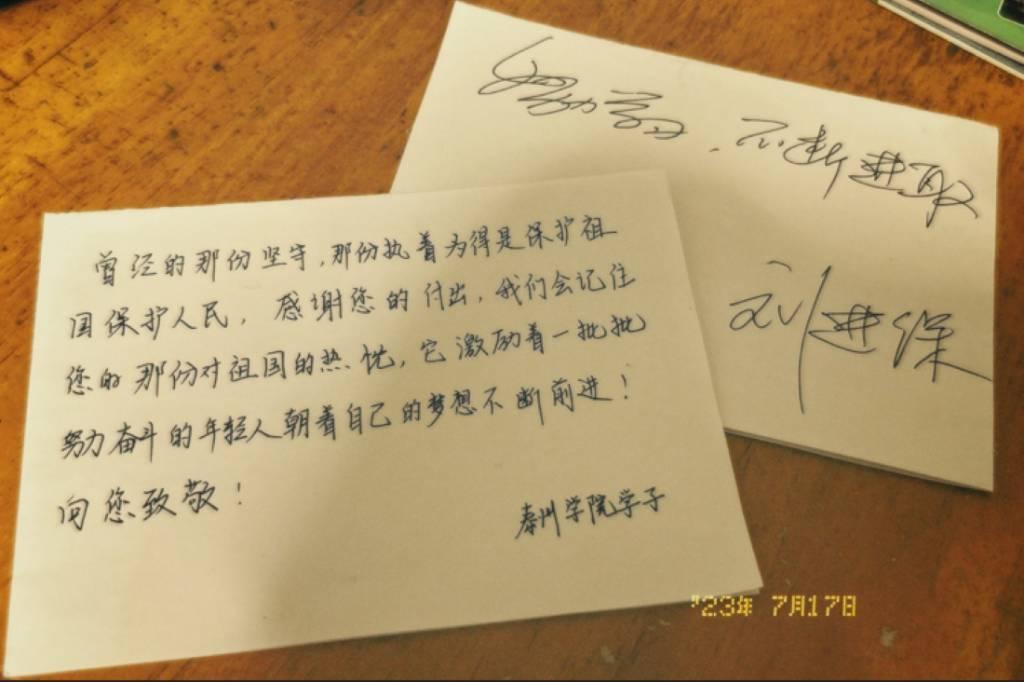 曾经的那份坚守,那份执着为得是保护祖
国保护人民，感谢您的付出，我们会记住
您的那份对祖国的热忱，它激励着一批批
努力奋斗的年轻人朝着自己的梦想不断前进！
向您致敬！
泰州学院学子
努力学习，不断进取
刘进保
'23年 7月17日